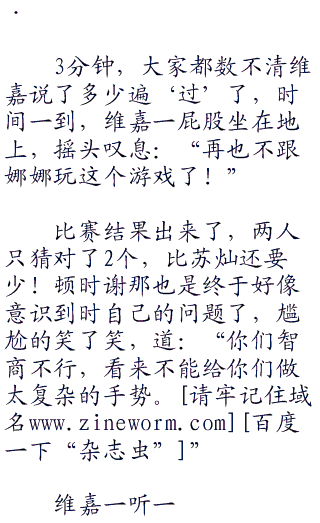 .
3分钟，大家都数不清维
嘉说了多少遍‘过’了，时
间一到，维嘉一屁股坐在地
上，摇头叹息：“再也不跟
娜娜玩这个游戏了！”
比赛结果出来了，两人
只猜对了2个，比苏灿还要
少！顿时谢那也是终于好像
意识到时自己的问题了，尴
尬的笑了笑，道：“你们智
商不行，看来不能给你们做
太复杂的手势。[请牢记住域
名www.zineworm.com][百度
一下“杂志虫”]”
维嘉一听一